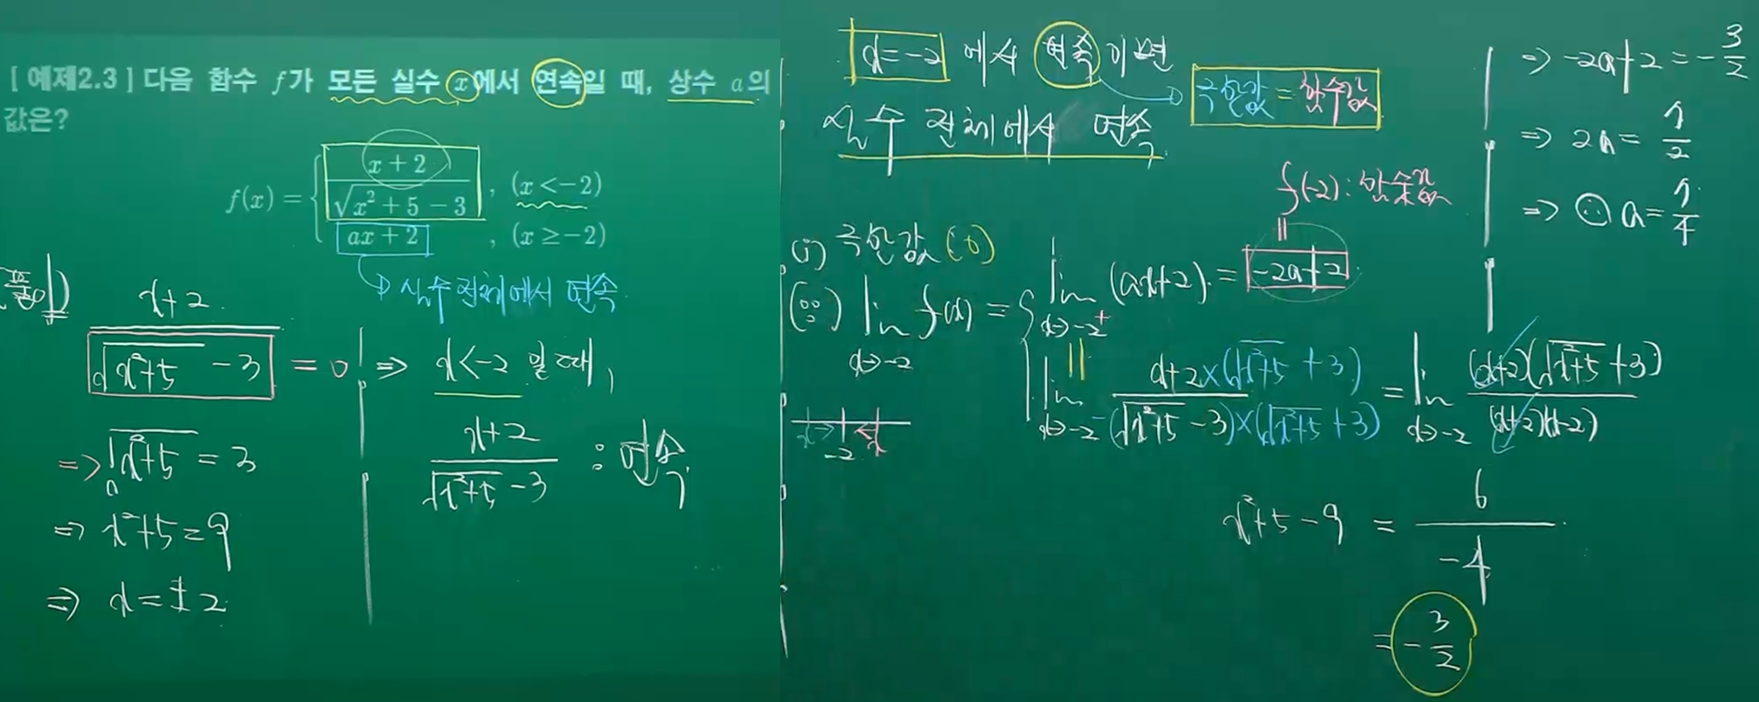 [ 예제2.3 ] 다음 함수 f가 모든 실수 x에서 연속일 때, 상수 a의
값은?
f(x) = { (x+2)/(√(x²+5) - 3), (x<-2)
ax+2, (x≥-2)
실수 전체에서 연속
x+2 / (√(x²+5) - 3) = 0
⇒ √(x²+5) = 3
⇒ x²+5=9
⇒ x=±2
⇒ x<-2 일 때,
(x+2)/(√(x²+5) -3) : 연속
x=-2 에서 연속이면
극한값 = 함수값
실수 전체에서 연속
f(-2): 함숫값
(i) 극한값 (o)
(∵) lim x→-2 f(x) = { lim x→-2+ (ax+2) = -2a+2
lim x→-2- (x+2×(√(x²+5) +3))/((√(x²+5) -3)×(√(x²+5) +3)) = lim x→-2 ((x+2)(√(x²+5) +3))/((x+2)(x-2))
x²+5-9 = 6/-4
= -3/2
x→ -2 ←x
⇒ -2a+2 = -3/2
⇒ 2a = 7/2
⇒ ∴ a = 7/4